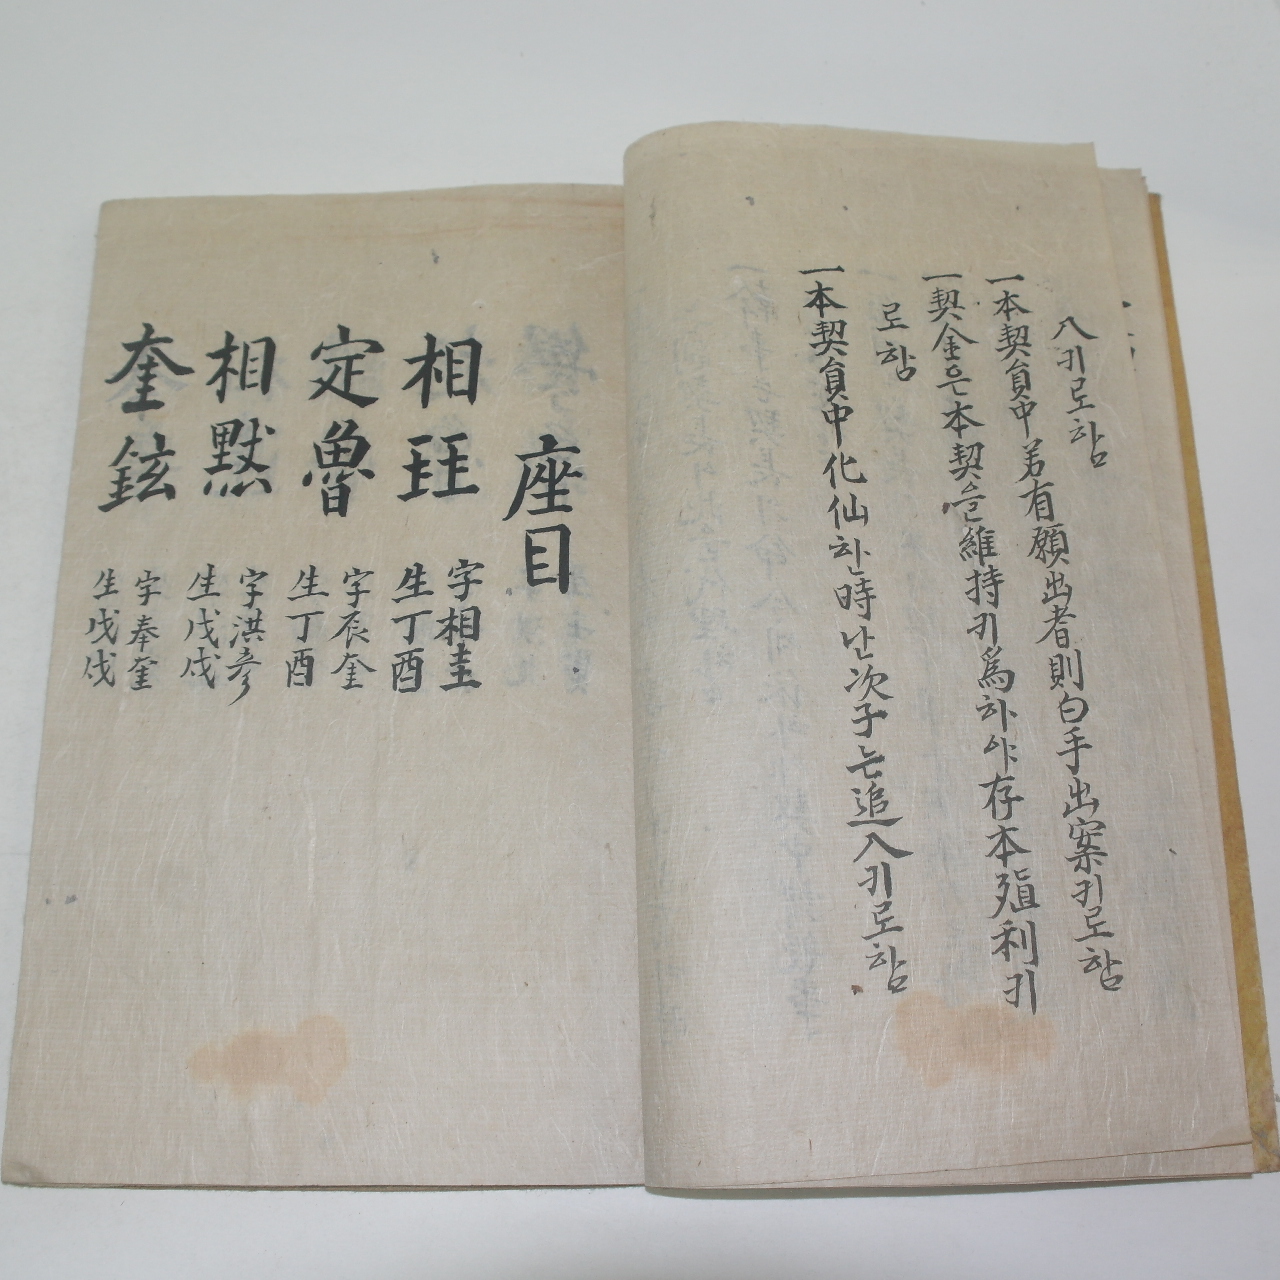 入키로함
一本契員中若有願出者則白手出案키로함
一契金은本契을維持키爲하야存本殖利키
로함
一本契員中化仙한時난次子는追入키로함
座目
相玨 字相圭 生丁酉
定魯 字辰奎 生丁酉
相黙 字洪彦 生戊戌
奎鉉 字奉奎 生戊戌